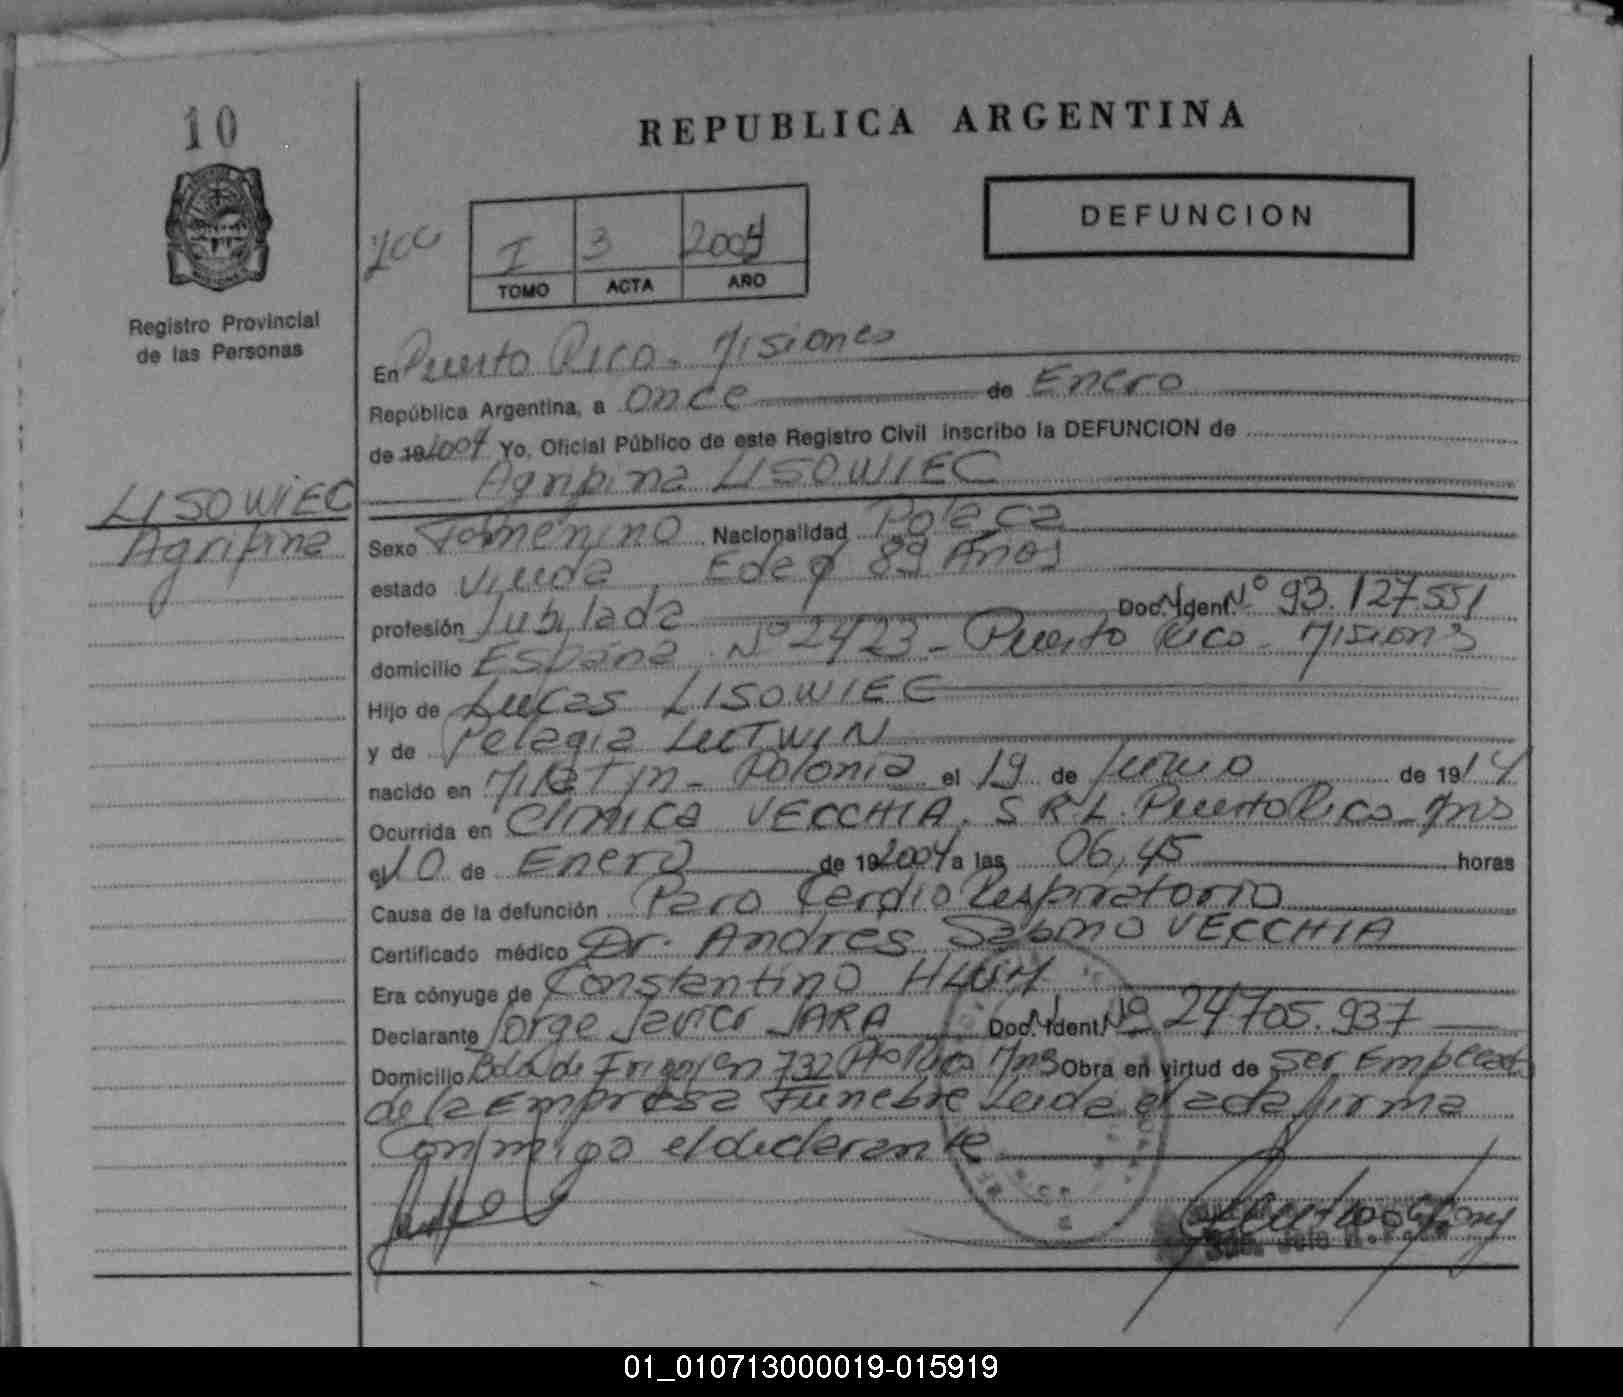 10
REPUBLICA ARGENTINA
DEFUNCION
I 3 2004
TOMO ACTA AÑO
Registro Provincial
de las Personas
En Puerto Rico - Misiones
República Argentina, a once de Enero
de 19 2004 Yo, Oficial Público de este Registro Civil inscribo la DEFUNCION de
Agripina LISOWIEC
LISOWIEC
Agripina
Sexo Femenino Nacionalidad Polaca
estado Viuda Edad 89 Años
profesión Jubilada Doc. N. Ident. Nº 93.127.551
domicilio España Nº 2423 - Puerto Rico - Misiones
Hijo de Lucas LISOWIEC
y de Pelagia LUTWIN
nacido en Polonia el 19 de Junio de 1914
Ocurrida en Clinica VECCHIA S R L. Puerto Rico - Mns
el 10 de Enero de 19 2004 a las 06,45 horas
Causa de la defunción Paro Cardio Respiratorio
Certificado médico Dr. Andres Sabino VECCHIA
Era cónyuge de Constantino HLUM
Declarante Jorge Javier JARA Doc. N. Ident. Nº 24705.937
Domicilio Bda de Irigoyen 732 Mns Obra en virtud de Ser Empleado
de la Empresa Funebre Leida el acta firma
Conmigo el declarante
01_010713000019-015919